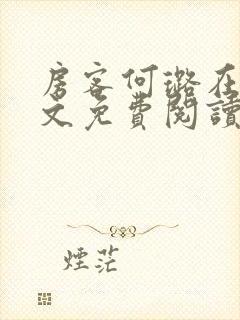 房客何璐在
文免費閱讀
煙茫